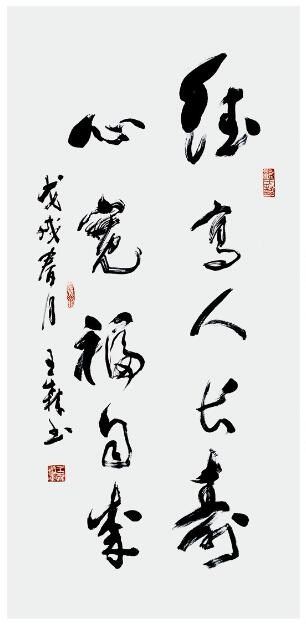 德高人长寿
心宽福自来
戊戌春月